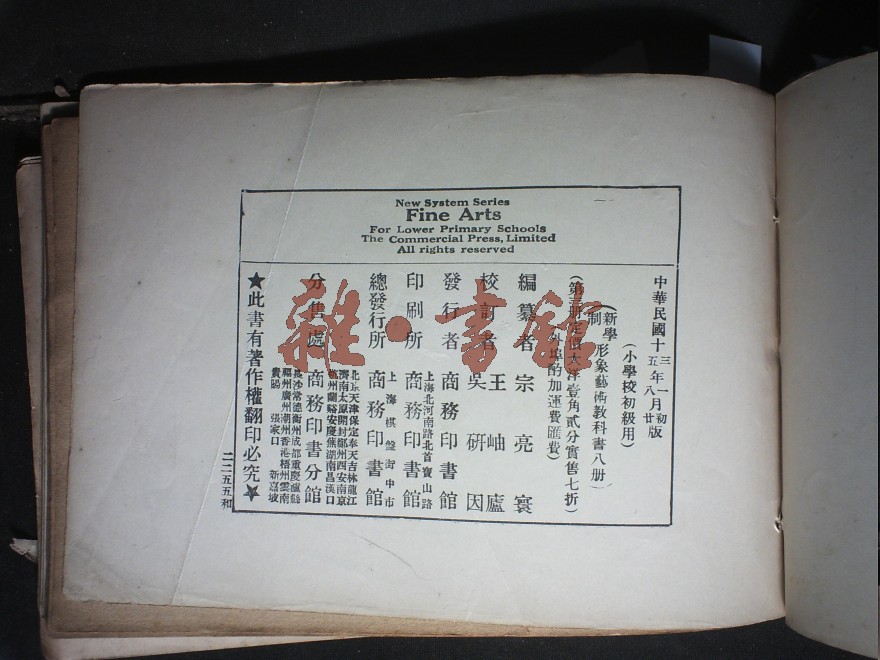 New System Series
Fine Arts
For Lower Primary Schools
The Commercial Press, Limited
All rights reserved
中華民國十三年一月初版
十五年八月廿
(小學校初級用)
(新學制形象藝術教科書八册)
(第三册定價大洋壹角貳分實售七折)
(外埠酌加運費匯費)
編纂者 宗亮寰
校訂者 王岫廬 吳研因
發行者 商務印書館
上海北河南路北首寶山路
印刷所 商務印書館
上海棋盤街中市
總發行所 商務印書館
分售處 商務印書分館
北京天津保定奉天吉林龍江
濟南太原開封鄭州西安南京
杭州蘭谿安慶蕪湖南昌漢口
長沙常德衡州成都重慶瀘縣
福州廣州潮州香港梧州雲南
貴陽 張家口 新嘉坡
★此書有著作權翻印必究★
二二五五和
雜·書館